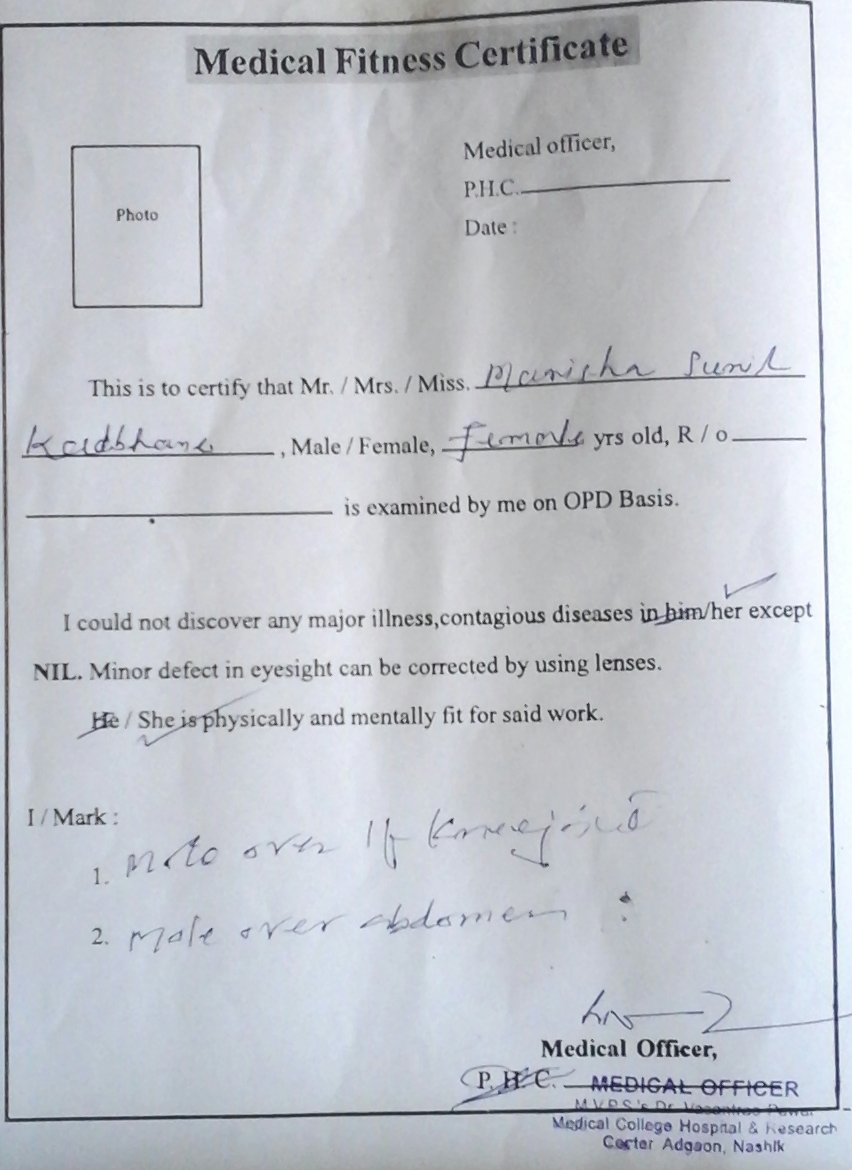 Medical Fitness Certificate
Photo
Medical officer,
P.H.C.
Date :
This is to certify that Mr. / Mrs. / Miss. Manisha Sunil
Kadbhane , Male / Female, Female yrs old, R / o
is examined by me on OPD Basis.
I could not discover any major illness,contagious diseases in him/her except
NIL. Minor defect in eyesight can be corrected by using lenses.
He / She is physically and mentally fit for said work.
I / Mark :
1. over lf Kneejoint
2. Mole over abdomen
Medical Officer,
P.H.C. MEDICAL OFFICER
M.V.P.S's Dr. Vasantrao Pawar
Medical College Hospital & Research
Center Adgaon, Nashik